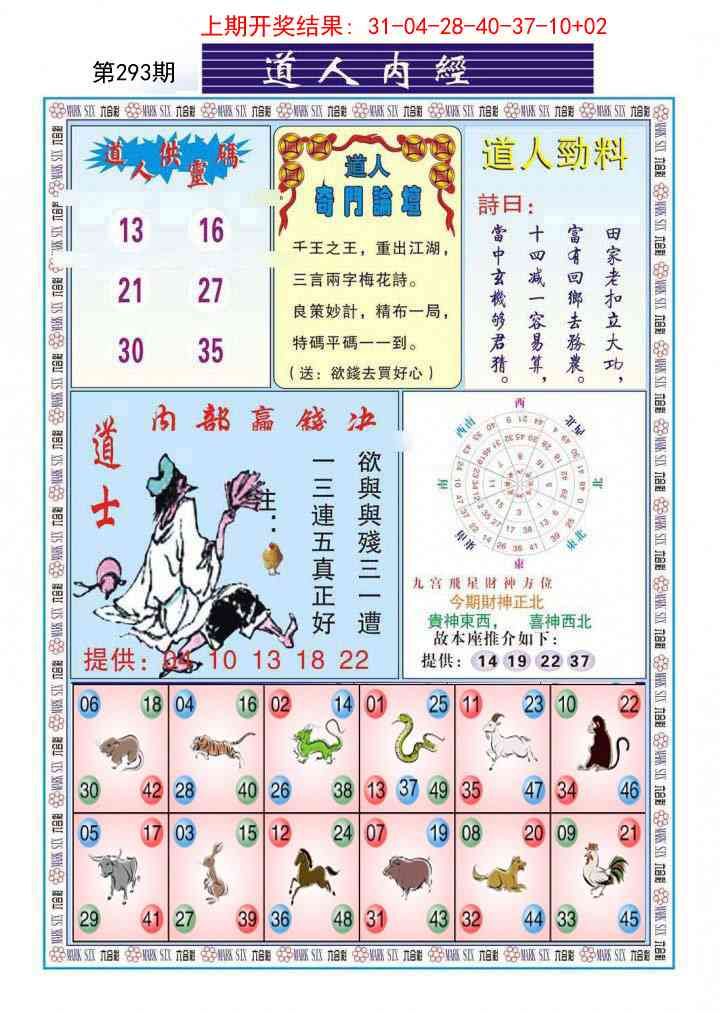 上期开奖结果: 31-04-28-40-37-10+02
第293期
道人内經
道人供靈碼
13 16
21 27
30 35
道人
奇門論壇
千王之王，重出江湖，
三言兩字梅花詩。
良策妙計，精布一局，
特碼平碼一一到。
(送：欲錢去買好心)
道人勁料
詩曰：
田家老扣立大功，
富有回鄉去務農。
十四减一容易算，
當中玄機够君猜。
道士
内部贏錢决
欲與與殘三一遭
一三連五真正好
注：
提供：04 10 13 18 22
西
西北
北
東北
東
南
西南
九宫飛星財神方位
今期財神正北
貴神東西，喜神西北
故本座推介如下：
提供：14 19 22 37
06 18 04 16 02 14 01 25 11 23 10 22
30 42 28 40 26 38 13 37 49 35 47 34 46
05 17 03 15 12 24 07 19 08 20 09 21
29 41 27 39 36 48 31 43 32 44 33 45
MARK SIX 六合彩